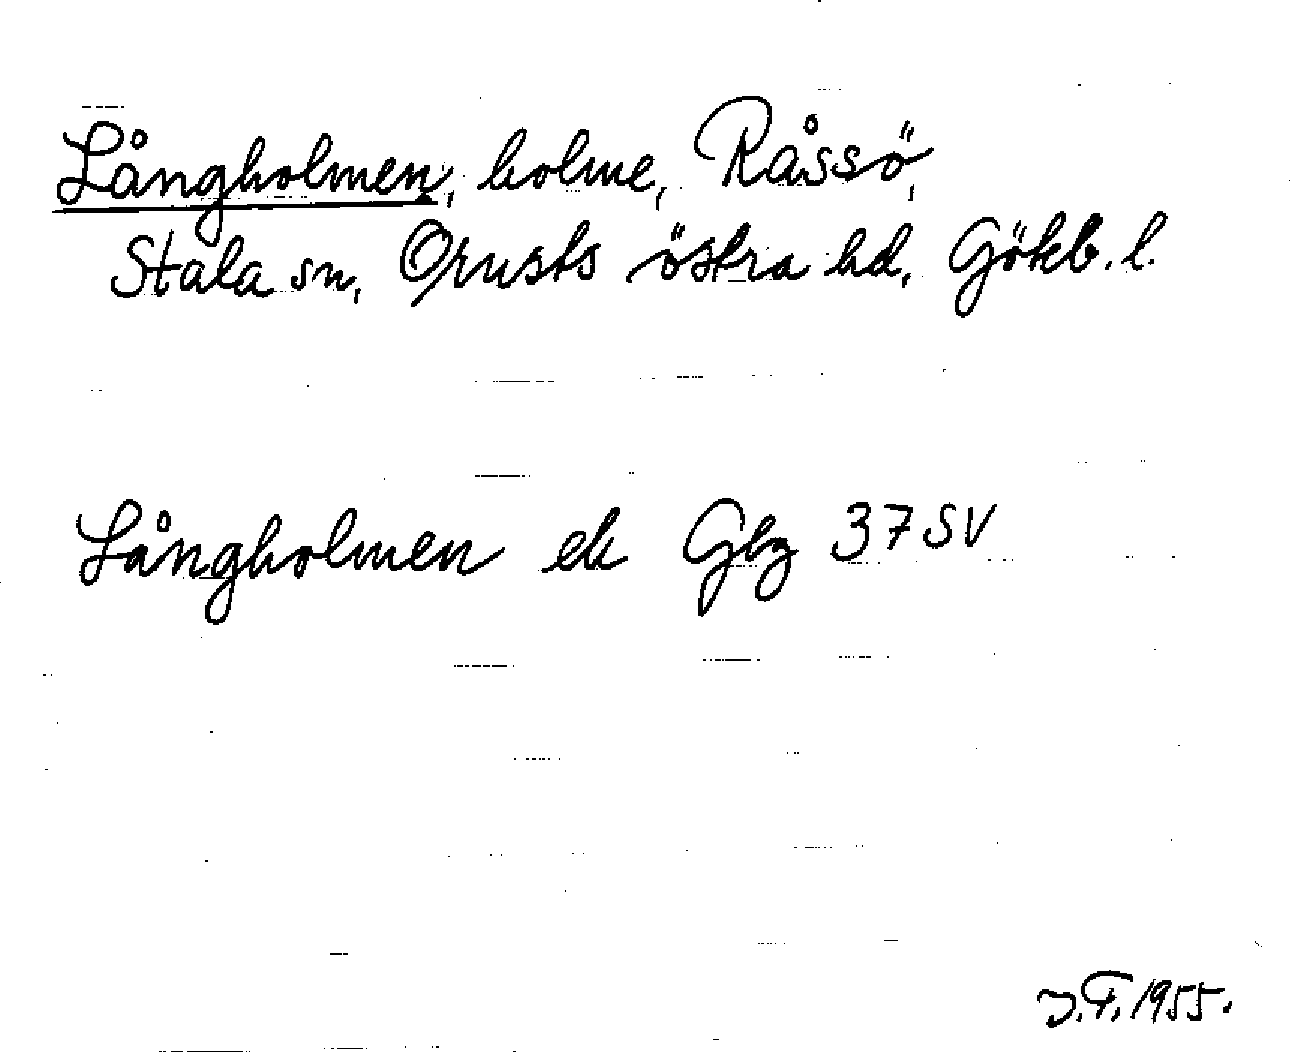 Långholmen, holme, Råssö,
Stala sn, Orusts östra hd, Götkb. l.
Långholmen ek Gbg 37 SV
J.F. 1955.